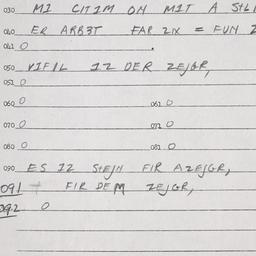 030 MI CITIM ON MIT A
040 ER ARBET FAR ZIX = FUN
041 0
050 VIFIL IZ DER ZEJGR,
051 0
060 0 061 0
070 0 072 0
080 0 081 0
090 ES IZ STEJN FIR AZEJGR,
091 FIR DEM ZEJGR,
092 0